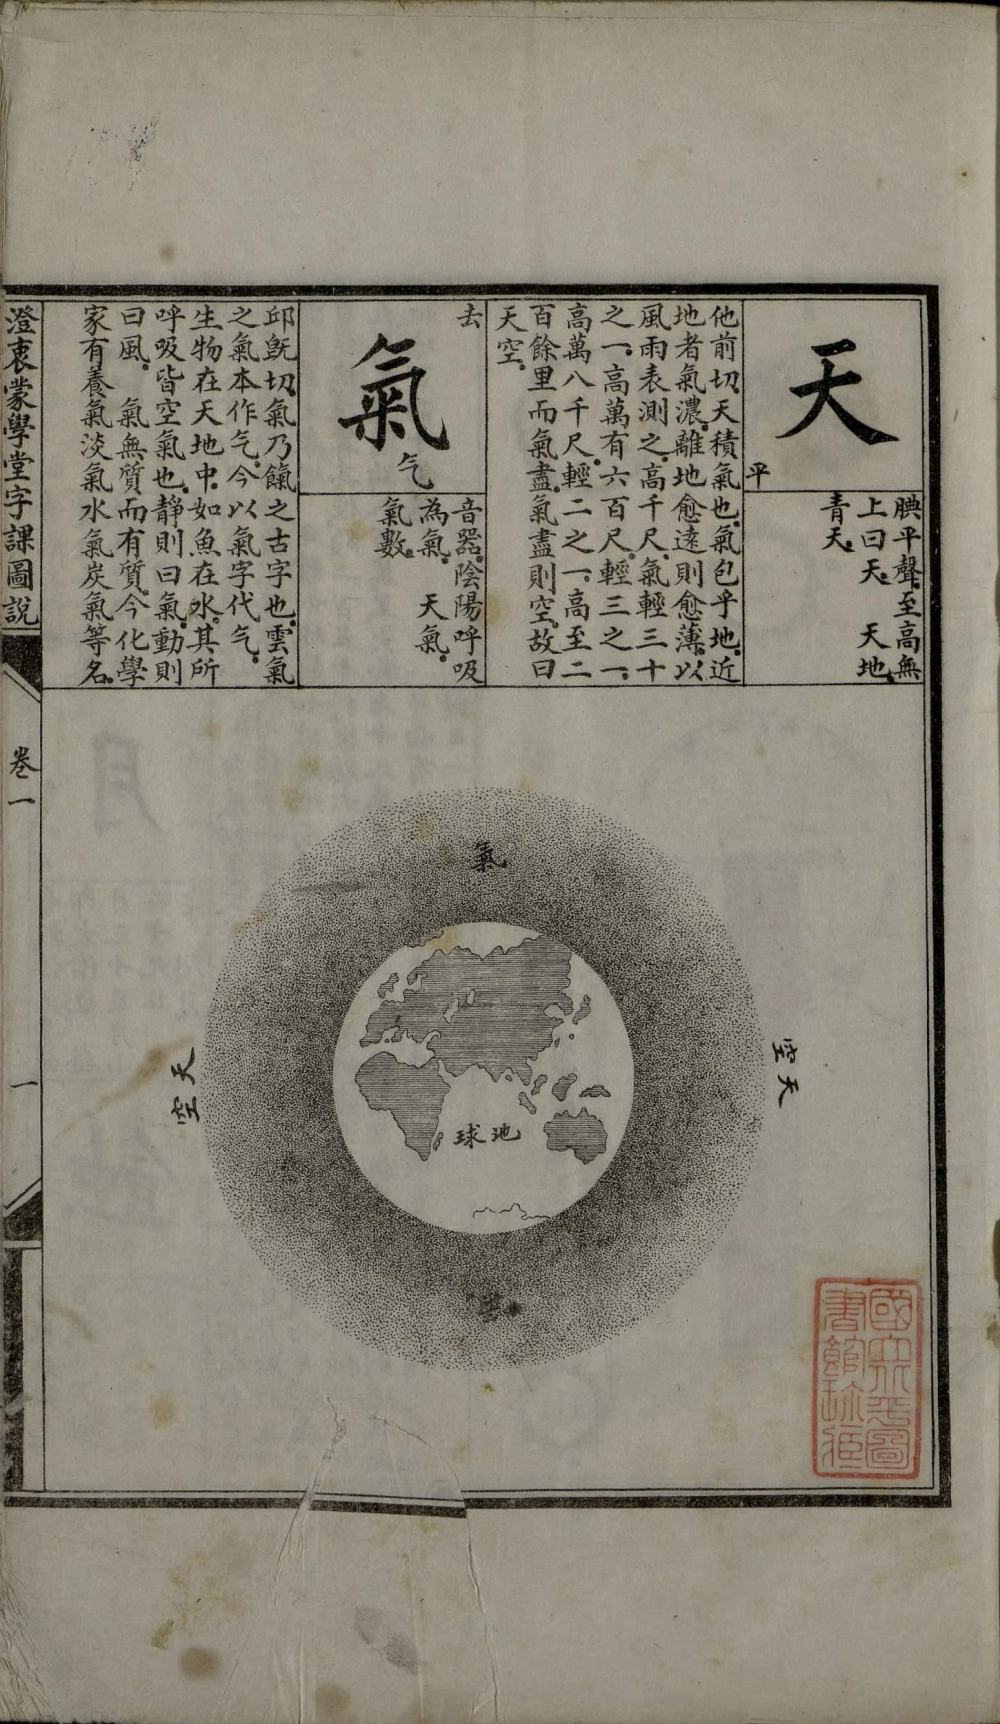 天
平
腆平聲。至高無
上曰天。　天地。
青天。
他前切。天積氣也。氣包乎地。近
地者氣濃。離地愈遠則愈薄。以
風雨表測之。高千尺。氣輕三十
之一。高萬有六百尺。輕三之一。
高萬八千尺。輕二之一。高至二
百餘里而氣盡。氣盡則空。故曰
天空。
去
氣
气
音器。陰陽呼吸
為氣。　天氣。
氣數。
邱旣切。氣乃餼之古字也。雲氣
之氣本作气。今以氣字代气。
生物在天地中。如魚在水。其所
呼吸皆空氣也。靜則曰氣。動則
曰風。　氣無質而有質。今化學
家有養氣淡氣水氣炭氣等名。
澄衷蒙學堂字課圖說
卷一
一
氣
天空
天空
地球
國立北平圖
書館珍藏